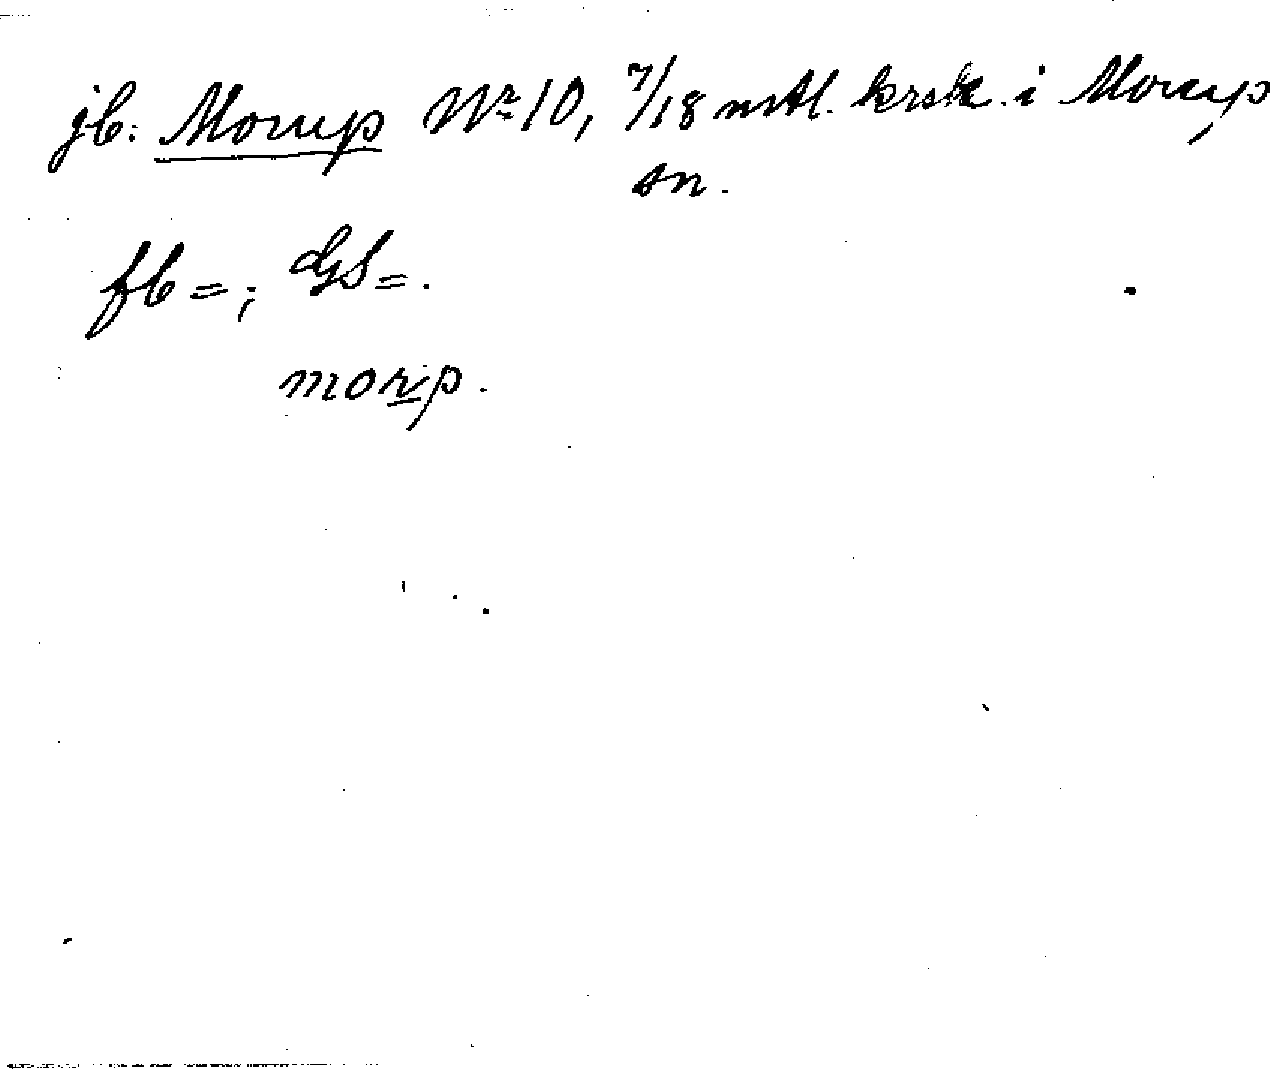 jb. Morup Nr 10, 7/18 mtl. krsk. i Morup
sn.
fb =; GS =.
morp.